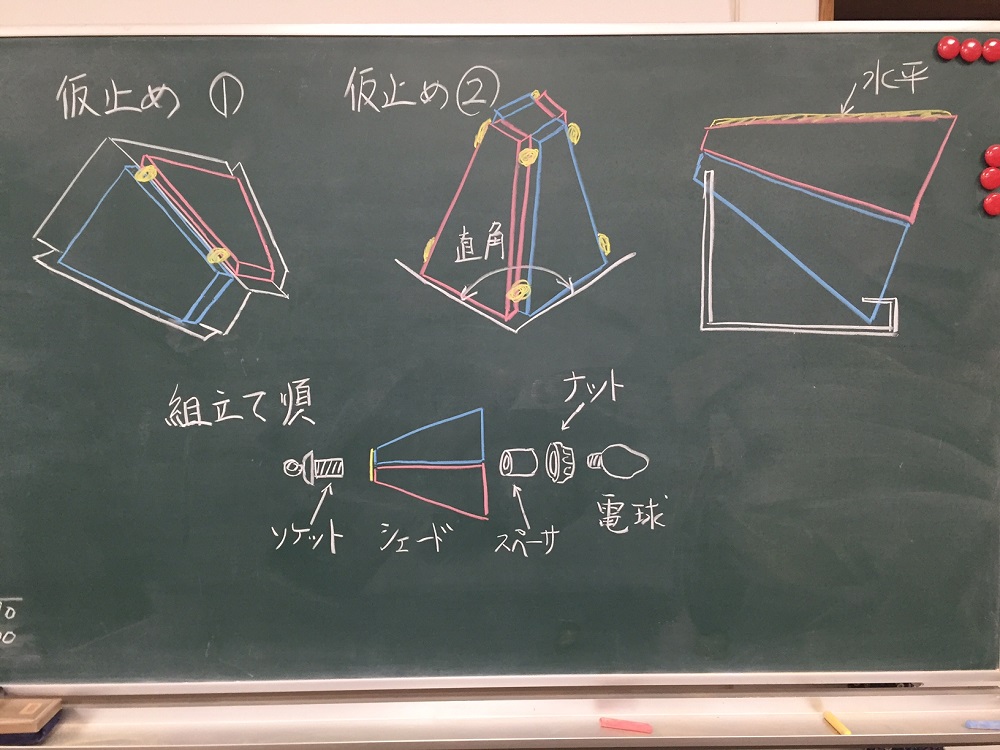 仮止め ①
仮止め②
水平
直角
組立て順
ナット
ソケット
シェード
スペーサ
電球